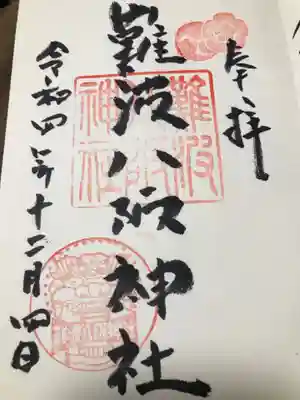 奉拝
難波八阪神社
難波
神社
令和四年十二月四日